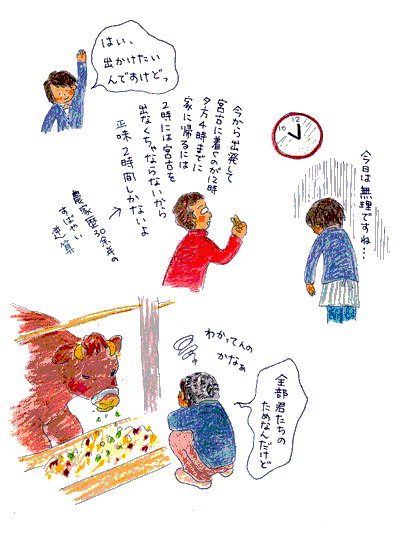 はい、
出かけたい
んですけどっ
今から出発して
宮古に着くのが12時
夕方4時までに
家に帰るには
2時には宮古を
出なくちゃならないから
正味2時間しかないよ
農家歴30余年の
すばやい
逆算
12
10
今日は無理ですね…
わかってんの
かなぁ
全部君たちの
ためなんだけど